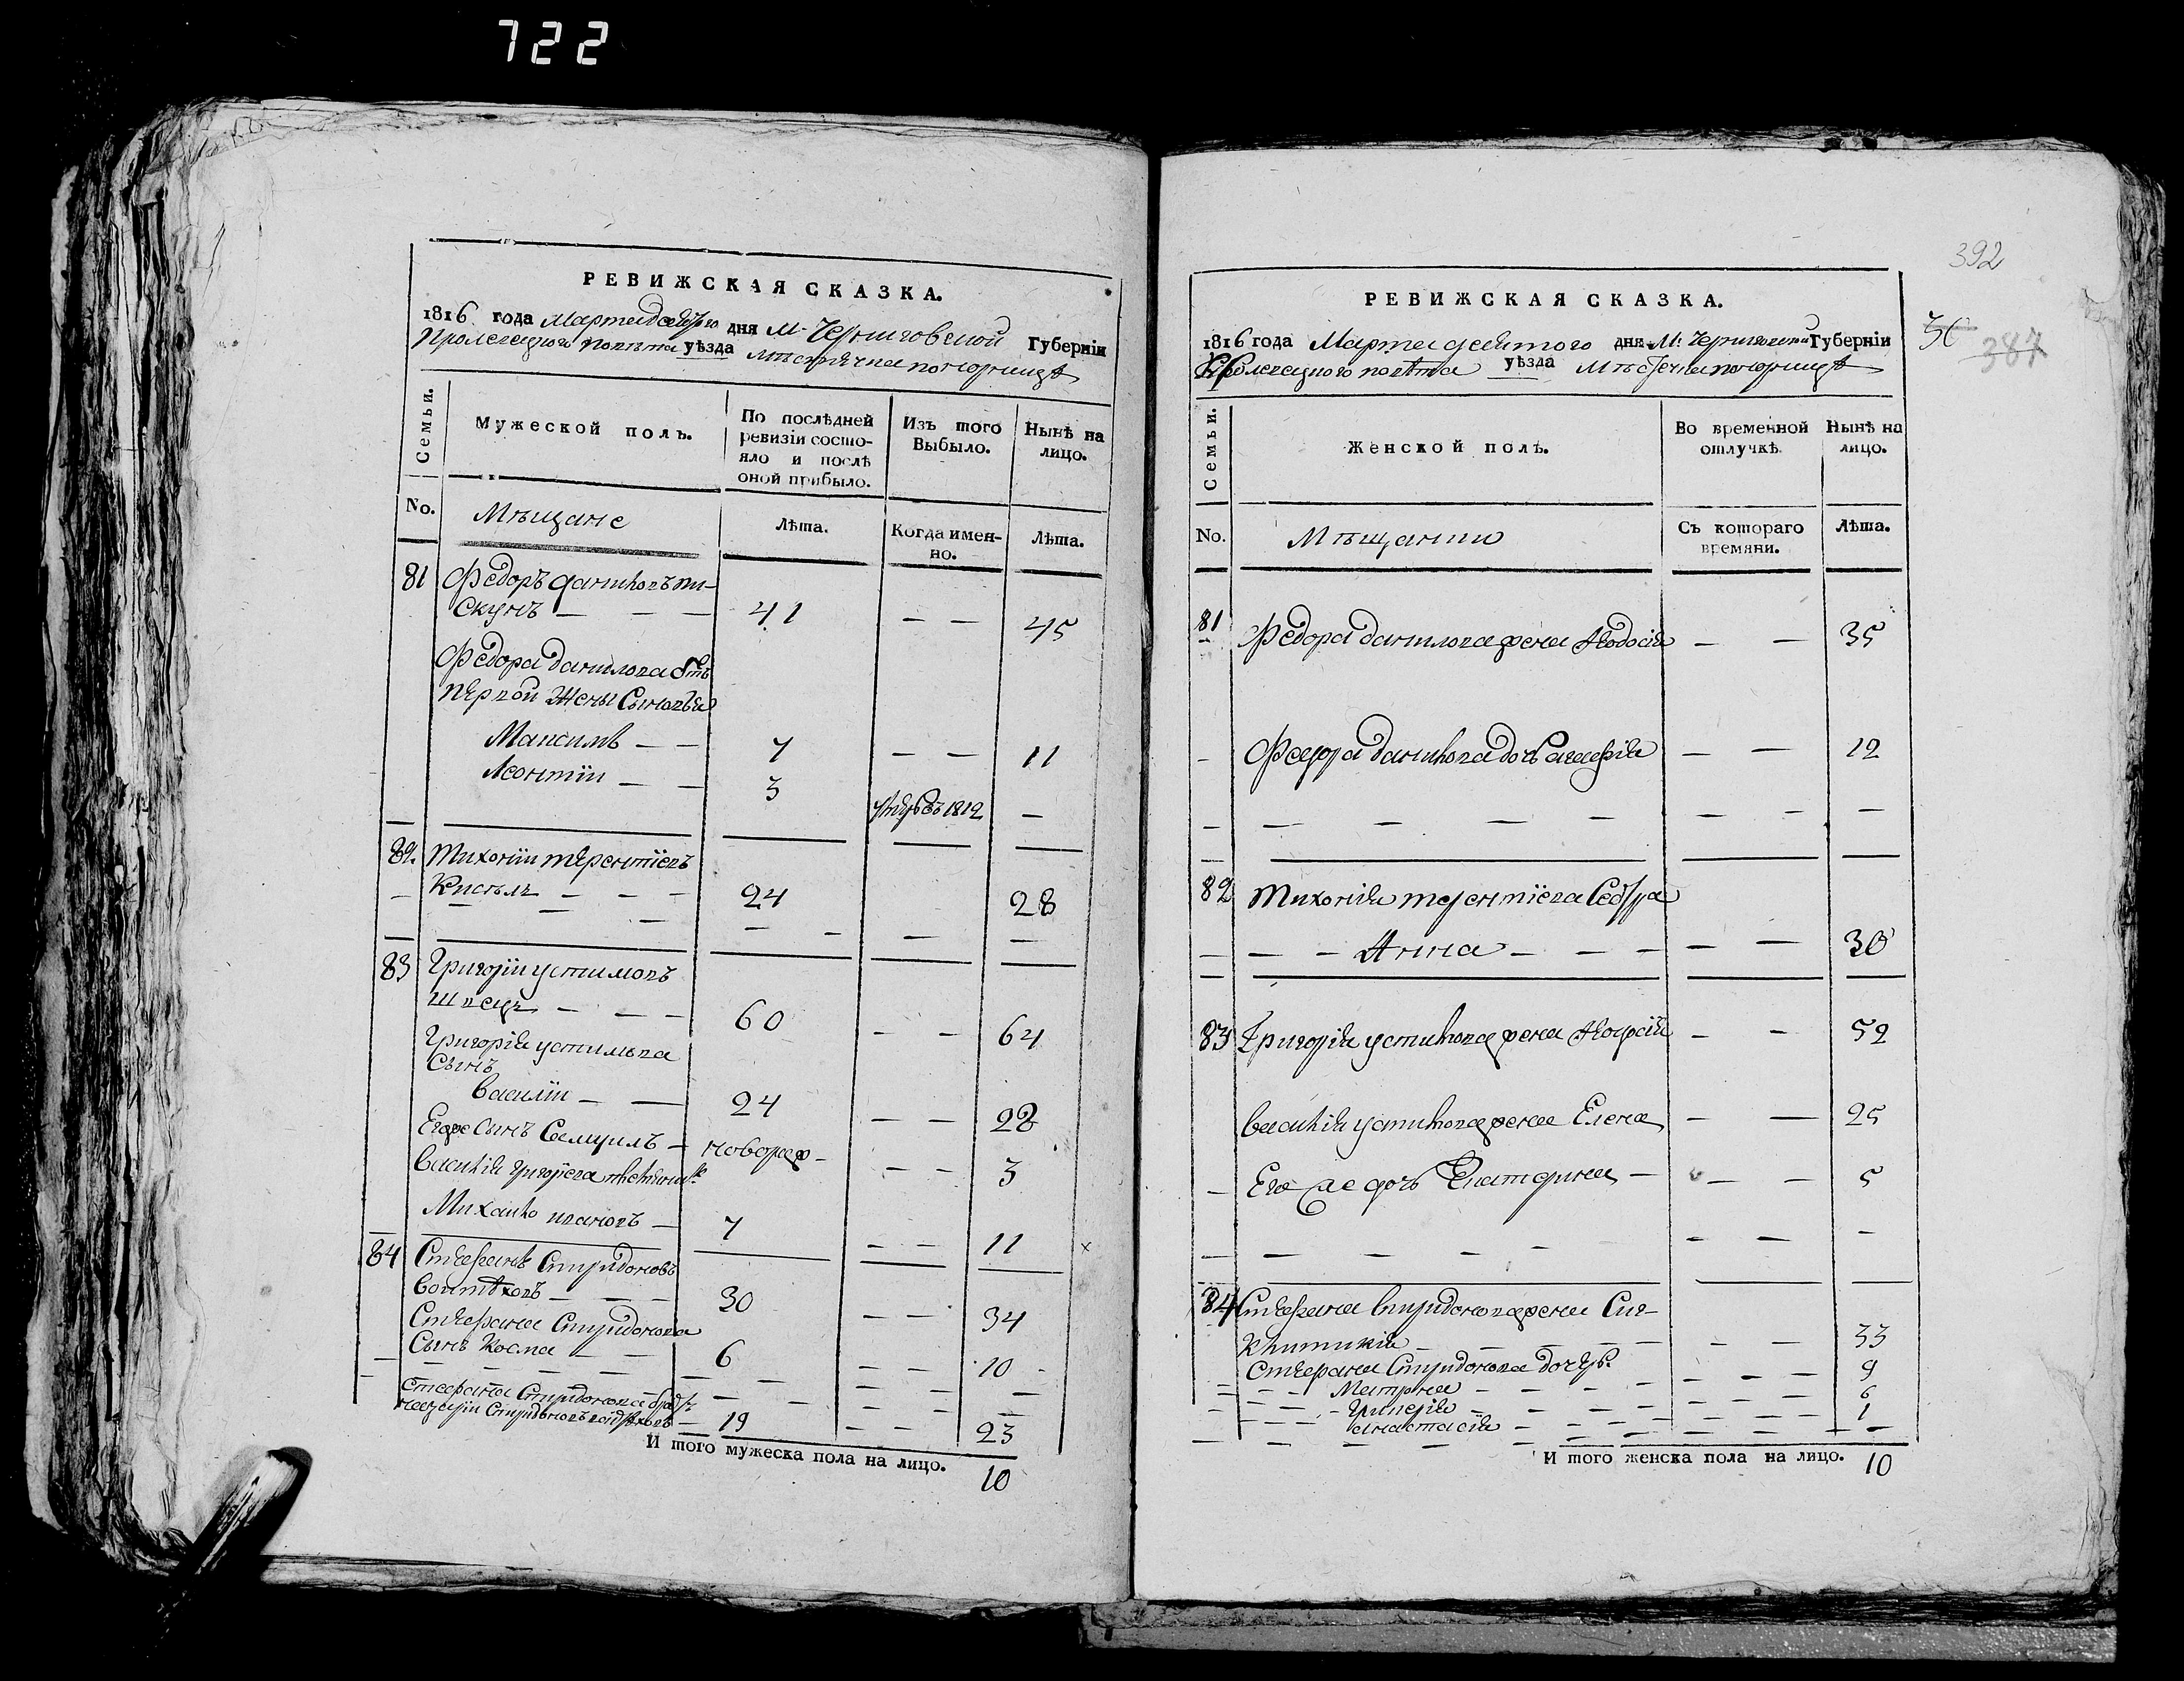 722
РЕВИЖСКАЯ СКАЗКА.
1816 года Марта дня М. Черниговской Губерніи
повѣта уѣзда мѣстечка погорища
Семьи.
Мужеской полъ.
По послѣдней ревизіи состояло и послѣ оной прибыло.
Изъ того Выбыло.
Нынѣ на лицо.
No.
Мѣщане
Лѣта.
Когда именно.
Лѣта.
81 Федоръ даниловъ пи-
скунъ — — — 41 — — 45
Федора данилова отъ
первой жены Сыновья
Максимъ — — 7 — — 11
Леонтіи — — 3 1812 —
82. Тихоніи терентіевъ
Кисѣль — — — 24 28
83 Григоріи устимовъ
швецъ — — — 60 — — 64
Григорія устимова
Сынъ
василіи — — 24 — — 28
Егоже Сынъ Самуилъ — новорож — — — 3
василія григорїева
Михаило ивановъ — 7 — — 11 x
84 Стефанъ Спиридоновъ
— — — 30 — — 34
Стефана Спиридонова
Сынъ Козма — — 6 — — 10
Стефана Спиридонова братъ
Спиридоновъ — 19 — — 23
И того мужеска пола на лицо. 10
392
387
РЕВИЖСКАЯ СКАЗКА.
1816 года Марта девятого дня М. Черниговской Губерніи
повѣта уѣзда Мѣстечка погорища
Семьи.
Женской полъ.
Во временной отлучкѣ.
Нынѣ на лицо.
No.
Мѣщанки
Съ котораго времяни.
Лѣта.
81 Федора данилова жена Ѳеодосія — — 35
— Федора данилова дочь агафія — — 12
82 Тихонія терентїева Сестра
— — — Анна — — — — — 30
83 Григорія устимова жена — — 52
василія устимова жена Елена — — 25
— Его же дочь Екатерина — — — 5
84 Стефана Спиридонова жена Син-
клитикія — — — — — — 33
Стефана Спиридонова дочерь — — — 9
— — — Матрона — — — — — — — 6
— — — — — — — — — — 1
анастасія — — — — — — — —
И того женска пола на лицо. 10